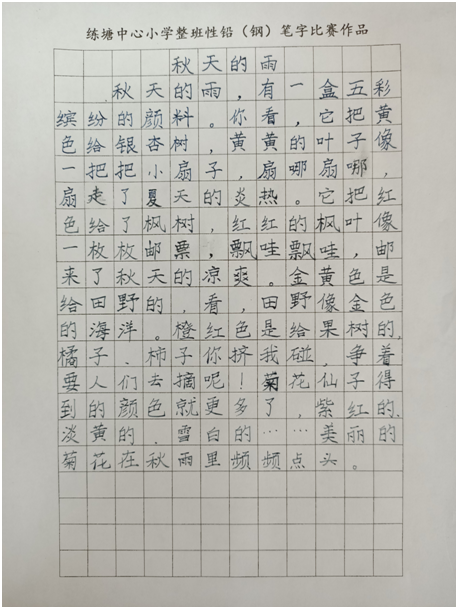 练塘中心小学整班性铅（钢）笔字比赛作品
秋天的雨
秋天的雨，有一盒五彩
缤纷的颜料。你看，它把黄
色给银杏树，黄黄的叶子像
一把把小扇子，扇哪扇哪，
扇走了夏天的炎热。它把红
色给了枫树，红红的枫叶像
一枚枚邮票，飘哇飘哇，邮
来了秋天的凉爽。金黄色是
给田野的，看，田野像金色
的海洋。橙红色是给果树的，
橘子、柿子你挤我碰，争着
要人们去摘呢！菊花仙子得
到的颜色就更多了，紫红的、
淡黄的、雪白的……美丽的
菊花在秋雨里频频点头。